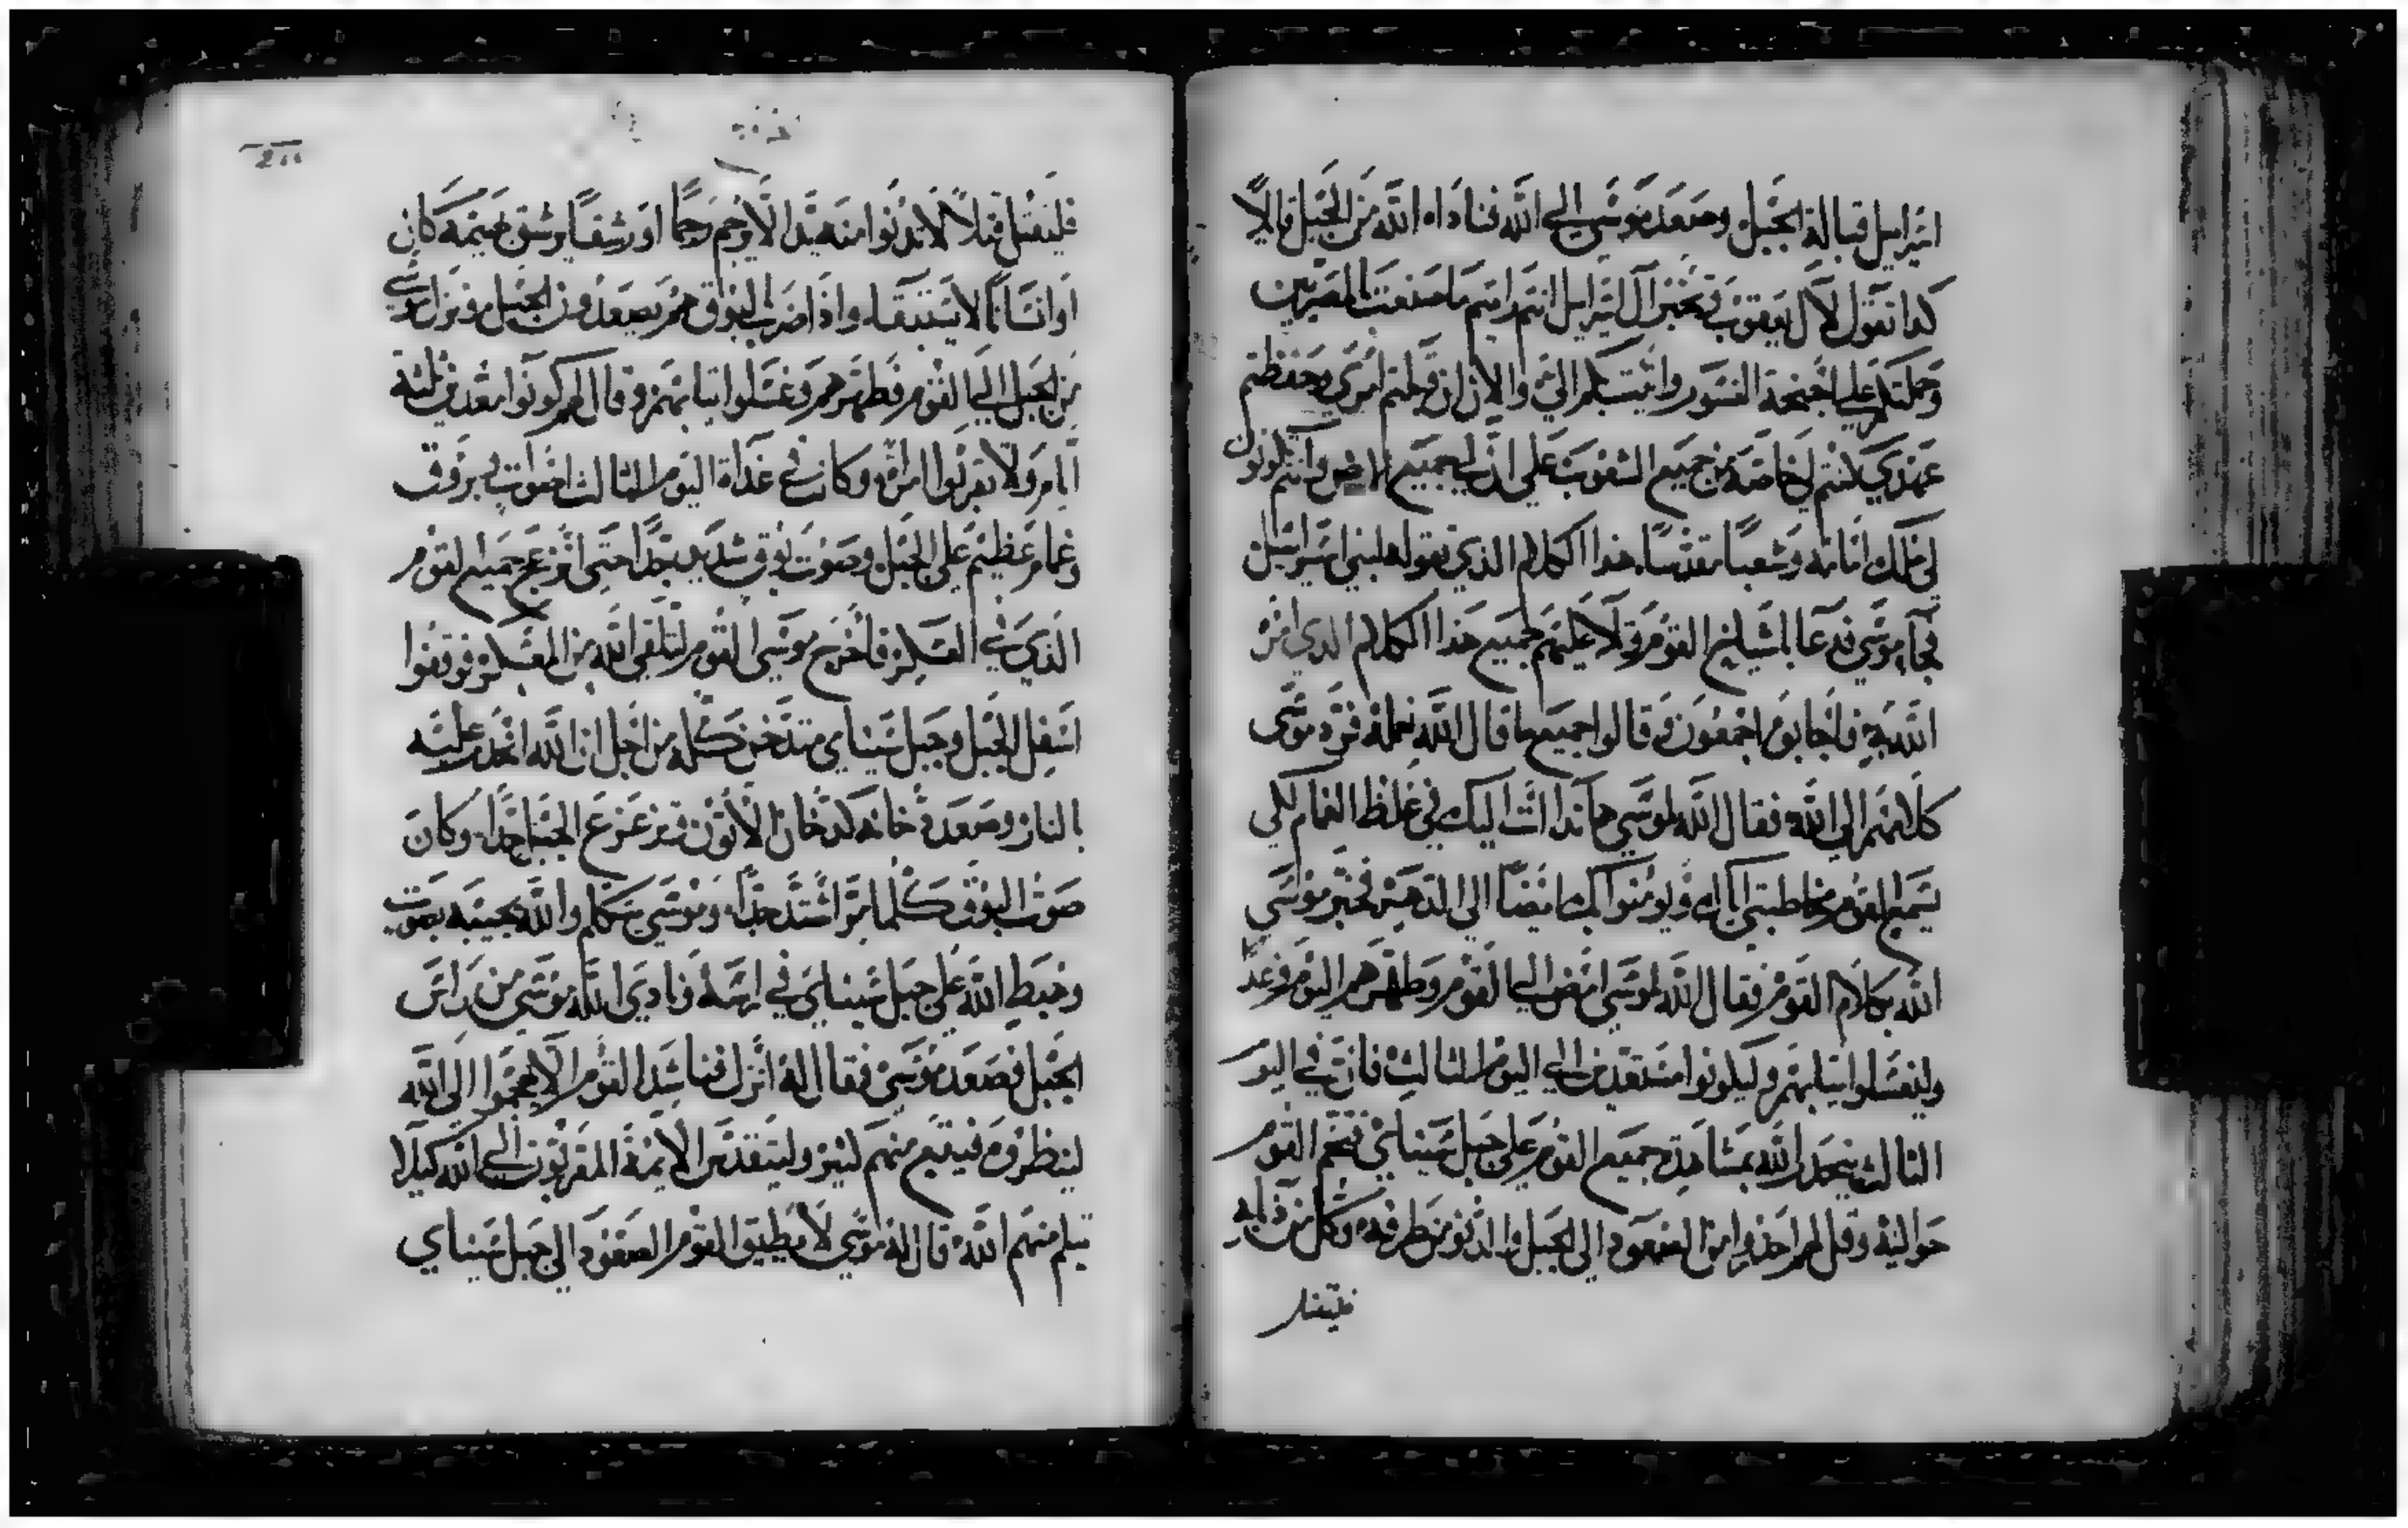 اسرايل قبالة الجبل وصعد موسى الى الله فناداه الله من الجبل قايلاً
كدا تقول لآل يعقوب وتخبر آل اسرايل انتم رايتم ما صنعت بالمصريين
وحملتكم على اجنحة النسور واتيت بكم الي والان ان قبلتم امري وحفظتم
عهدي كنتم لي خاصة من جميع الشعوب على ان لي جميع الارض وانتم تكونون
لي ملك امامه وشعباً مقدساً هذا الكلام الذي تقوله لبني اسرايل
فجا موسى فدعا بمشايخ القوم وتلا عليهم جميع هذا الكلام الدي امره
الله به فاجابوه اجمعون وقالوا جميع ما قال الله نعمله فرد موسى
كلامهم الى الله فقال الله لموسى هانذا ات اليك في غلظ الغمام لكي
يسمع القوم مخاطبتي اياك ويومنوا بك ايضاً الى الدهر فخبر موسى
الله بكلام القوم فقال الله لموسى امض الى القوم وطهرهم اليوم وغداً
وليغسلوا ثيابهم وليكونوا مستعدين الى اليوم الثالث فان في اليوم
الثالث ينحدر الله بمشاهدة جميع القوم على جبل سيناي فتخم القوم
حواليه وقل لهم احذروا من الصعود الى الجبل والدنو من طرفه وكل من دنا به
فليقتل
فليقتل قتلاً لا تدنوا منه يد الا رجم رجماً او رشقاً يرشق بهيمة كان
او انساناً لا يستبقا واذا ضرب البوق هم يصعدون الجبل فنزل موسى
من الجبل الى القوم فطهرهم وغسلوا ثيابهم وقال لهم كونوا معدين ثلثة
ايام ولا تقربوا امراة وكان في غداة اليوم الثالث اصوات وبروق
وغمام عظيم على الجبل وصوت بوق شديد جداً حتى انزعج جميع القوم
الذي في العسكر فاخرج موسى القوم لتلقي الله من المعسكر فوقفوا
اسفل الجبل وجبل سيناي متدخن كله من اجل ان الله انحدر عليه
بالنار وصعد دخانه كدخان الاتون وتزعزع الجبل جداً وكان
صوت البوق كلما مر اشتد جداً وموسى يتكلم والله يجيبه بصوت
وهبط الله على جبل سيناي في راسه ونادى الله موسى من راس
الجبل فصعد موسى فقال له انزل فناشد القوم الا يهجموا الى الله
لينظروه فيقع منهم كثير وليتقدس الايمة المقربون الى الله كيلا
يثلم منهم الله قال له موسى لا يطيق القوم الصعود الى جبل سيناي